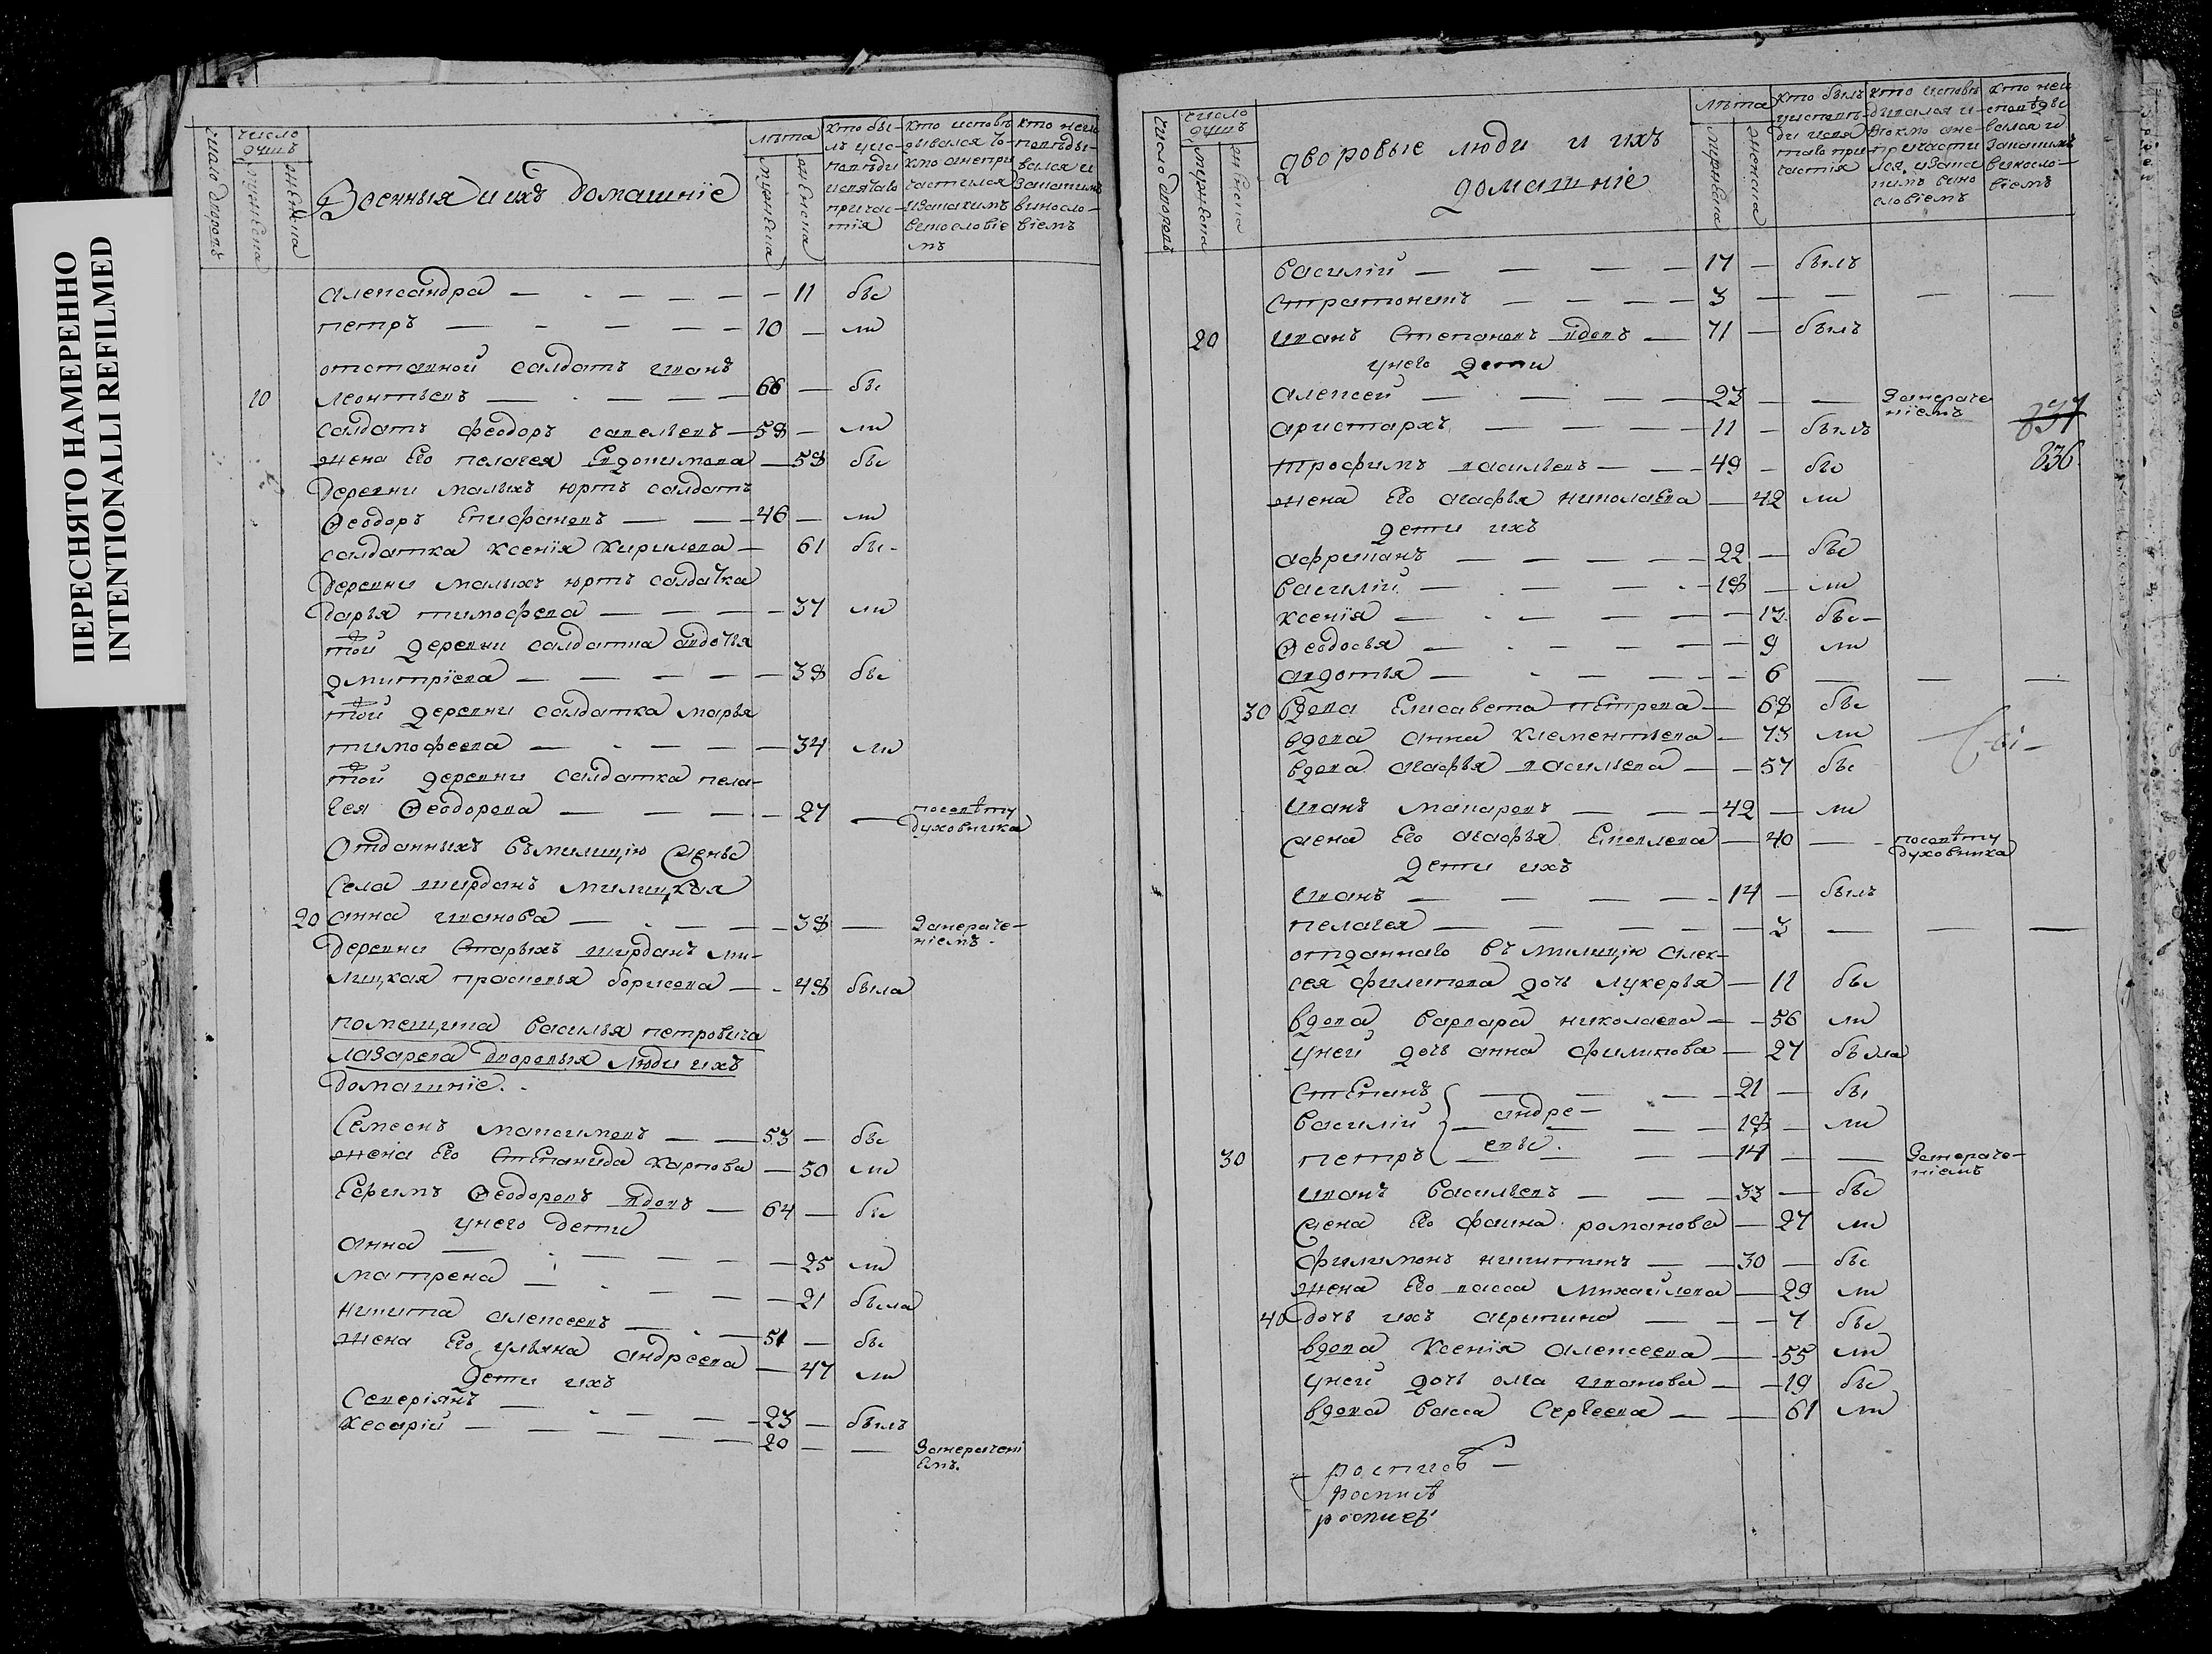 ПЕРЕСНЯТО НАМЕРЕННО
INTENTIONALLI REFILMED
число дворовъ
число душъ
мужеска
женска
Военныя и ихъ домашніе
лѣта
мужеска
женска
кто бы-
лъ у ис-
повѣди
и св. таго
причас-
тія
кто исповѣ-
дывался то-
кмо а не при
частился
и за какимъ
винословіе
мъ
кто неис-
повѣды-
вался и
за какимъ
виносло-
віемъ
александра — 11 бы
петръ — 10 — ли
отставной салдатъ иванъ
10 леонтьевъ — 66 — бы
салдатъ феодоръ савельевъ — 58 — ли
жена Его пелагея Евдокимова — 58 бы
деревни малыхъ юртъ салдатъ
Ѳеодоръ Епифановъ — 46 — ли
салдатка ксенія кирилова — 61 бы
деревни малыхъ юртъ салдатка
дарья тимофева — 37 ли
той деревни салдатка авдотья
дмитріева — 38 бы
той деревни салдатка марья
тимофеева — 34 ли
той деревни салдатка пела-
гея Ѳеодорова — 27 — посовѣту
духовника
Отданныхъ въ милицію жены
села ширданъ милицкая
20 анна иванова — 38 — Занераче-
ніемъ
деревни Старыхъ ширданъ ми-
лицкая прасковья борисова — 48 была
помещика василья петровича
лазарева дворовыя люди и ихъ
домашніе.
Семеонъ максимовъ — 53 — бы
жена Его Степанида карпова — 50 ли
Ефимъ Ѳеодоровъ вдовъ — 64 — бы
у него дети
анна — 25 ли
матрена — 21 была
никита алексеевъ — 51 — бы
жена Его ульяна андреева — 47 ли
дети ихъ
Северіянъ — 23 — былъ
кесарій — 20 — — Занерачені
емъ.
число дворовъ
число душъ
мужеска
женска
дворовые люди и ихъ
домашніе
лѣта
мужеска
женска
кто былъ
у исповѣ-
ди и свя
таго при-
частія
кто исповѣ
дывался и
токмо а не
причасти
лся, и за как
имъ вино
словіемъ
кто неи
сповѣды
вался и
за какимъ
виносло-
віемъ
василій — 17 — былъ
Стратоникъ — 3 — — — —
20 иванъ Степановъ вдовъ — 71 — былъ
у него дети
алексей — 23 — — Занераче
ніемъ
837
аристархъ — 11 — былъ
836
трофимъ васильевъ — 49 — бы
жена Его агафья николаева — 42 ли
дети ихъ
африканъ — 22 — бы
василій — 18 — ли
ксенія — 13 бы
Ѳеодосья — 9 ли
авдотья — 6 — — —
30 вдова Елисавета петрова — 68 бы
вдова анна клементьева — 73 ли
вдова агафья васильева — 57 бы
иванъ макаровъ — 42 — ли
жена Его агафья Емельева — 40 — посовѣту
духовника
дети ихъ
иванъ — 14 — былъ
пелагея — 3 — — —
отданнаго въ милицію алек-
сея филипова дочь лукерья — 11 бы
вдова варвара николаева — 56 ли
у ней дочь анна филипова — 27 была
Степанъ — 21 — бы
василій андре- — 18 — ли
30 петръ евы. — 14 — — Занераче-
ніемъ
иванъ васильевъ — 33 — бы
жена Его фаина романова — 27 ли
филимонъ никитинъ — 30 — бы
жена Его васса михайлова — 29 ли
40 дочь ихъ акулина — 7 бы
вдова ксенія алексеева — 55 ли
у ней дочь ольга иванова — 19 бы
вдова васса Сергеева — 61 ли
роспись
роспись
роспись